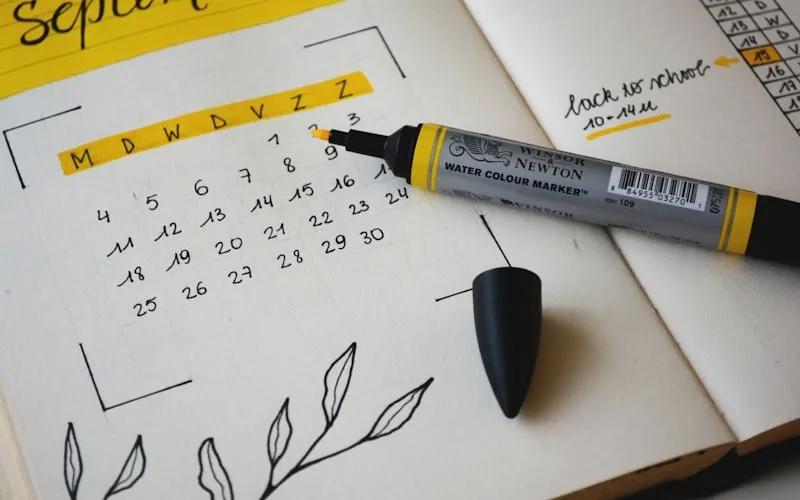 Septem
M D W D V Z Z
1 2 3
4 5 6 7 8 9
11 12 13 14 15 16
18 19 20 21 22 23 24
25 26 27 28 29 30
12 D
13 W
14 D
15 V
16 Z
17
back to school
10-14u
WINSOR
&
NEWTON
WATER COLOUR MARKER™
8 84955 03270 1
109
WINSOR